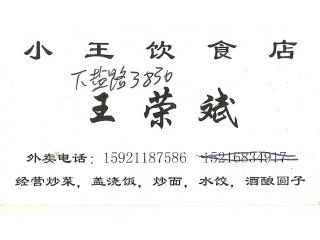 小王饮食店
下盐路3830
王荣斌
外卖电话：15921187586 15216834917
经营炒菜，盖浇饭，炒面，水饺，酒酿圆子